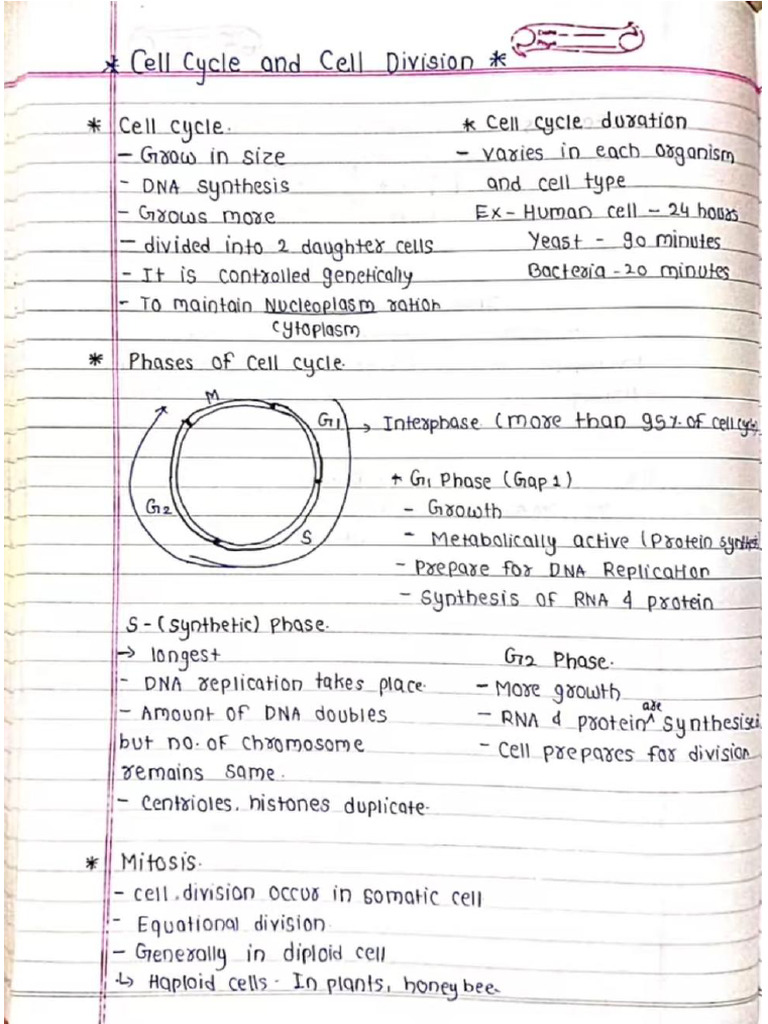 * Cell Cycle and Cell Division *
* Cell cycle.
- Grow in size
- DNA synthesis
- Grows more
- divided into 2 daughter cells
- It is controlled genetically
- To maintain Nucleoplasm ration
Cytoplasm
* Cell cycle duration
- varies in each organism
and cell type
Ex- Human cell - 24 hours
Yeast - 90 minutes
Bacteria - 20 minutes
* Phases of cell cycle.
M
G1
G2
S
→ Interphase (more than 95% of cell
+ G1 Phase (Gap 1)
- Growth
- Metabolically active (Protein
- Prepare for DNA Replication
- Synthesis of RNA & protein
S-(Synthetic) Phase.
→ longest
- DNA replication takes place.
- Amount of DNA doubles
but no. of chromosome
remains same.
- Centrioles, histones duplicate.
G2 Phase.
- More growth
- RNA & protein ^are
- Cell prepares for division
* Mitosis.
- cell division occur in somatic cell
- Equational division
- Generally in diploid cell
↳ Haploid cells - In plants, honey bee.